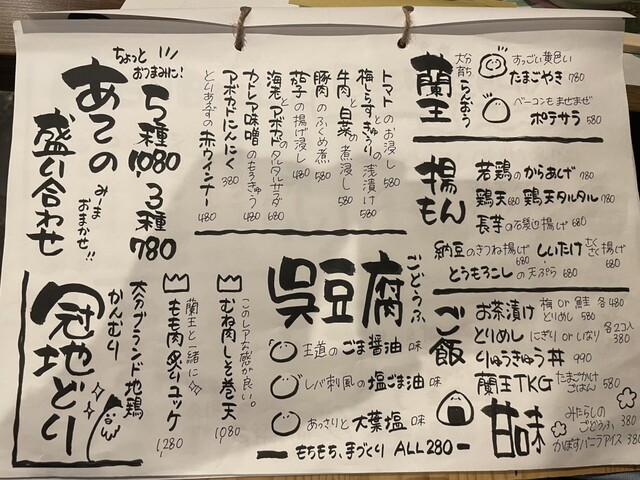 ちょっと
おつまみに!
あての
盛り合わせ
5種1,080
3種780
みーま
おまかせ!!
トマトのお浸し 580
梅しらすときゅうりの浅漬け 580
牛肉と白菜の煮浸し 580
豚肉のふくめ煮 580
茄子の揚げ浸し 480
海老とアボカドのタルタルサラダ 680
カトレア味噌のもろきゅう 480
アボカドにんにく 380
とりあえずの赤ウインナー 480
蘭王
大分産
らんおう
すっごい黄色い
たまごやき 780
ベーコンもまぜまぜ
ポテサラ 580
揚もん
若鶏のからあげ 780
鶏天 680 鶏天タルタル 780
長芋の石袋揚げ 680
納豆のきつね揚げ 680
しいたけさくさく揚げ 680
とうもろこしの天ぷら 680
ご飯
お茶漬け 梅 or 鮭 各480
とりめし 580
とりめし にぎり or いなり 各2コ入 380
りゅうきゅう丼 990
蘭王TKG たまごかけごはん 580
甘味
みたらしのごどうふ 380
かぼすバニラアイス 380
呉豆腐
ごどうふ
王道のごま醤油味
レバ刺風の塩ごま油味
あっさりと大葉塩味
もちもち、手づくり ALL280
冠地どり
かんむり
大分ブランド地鶏
蘭王と一緒に
もも肉炙りユッケ 1,280
このレアな感が良い。
むね肉しそ巻天 1,080